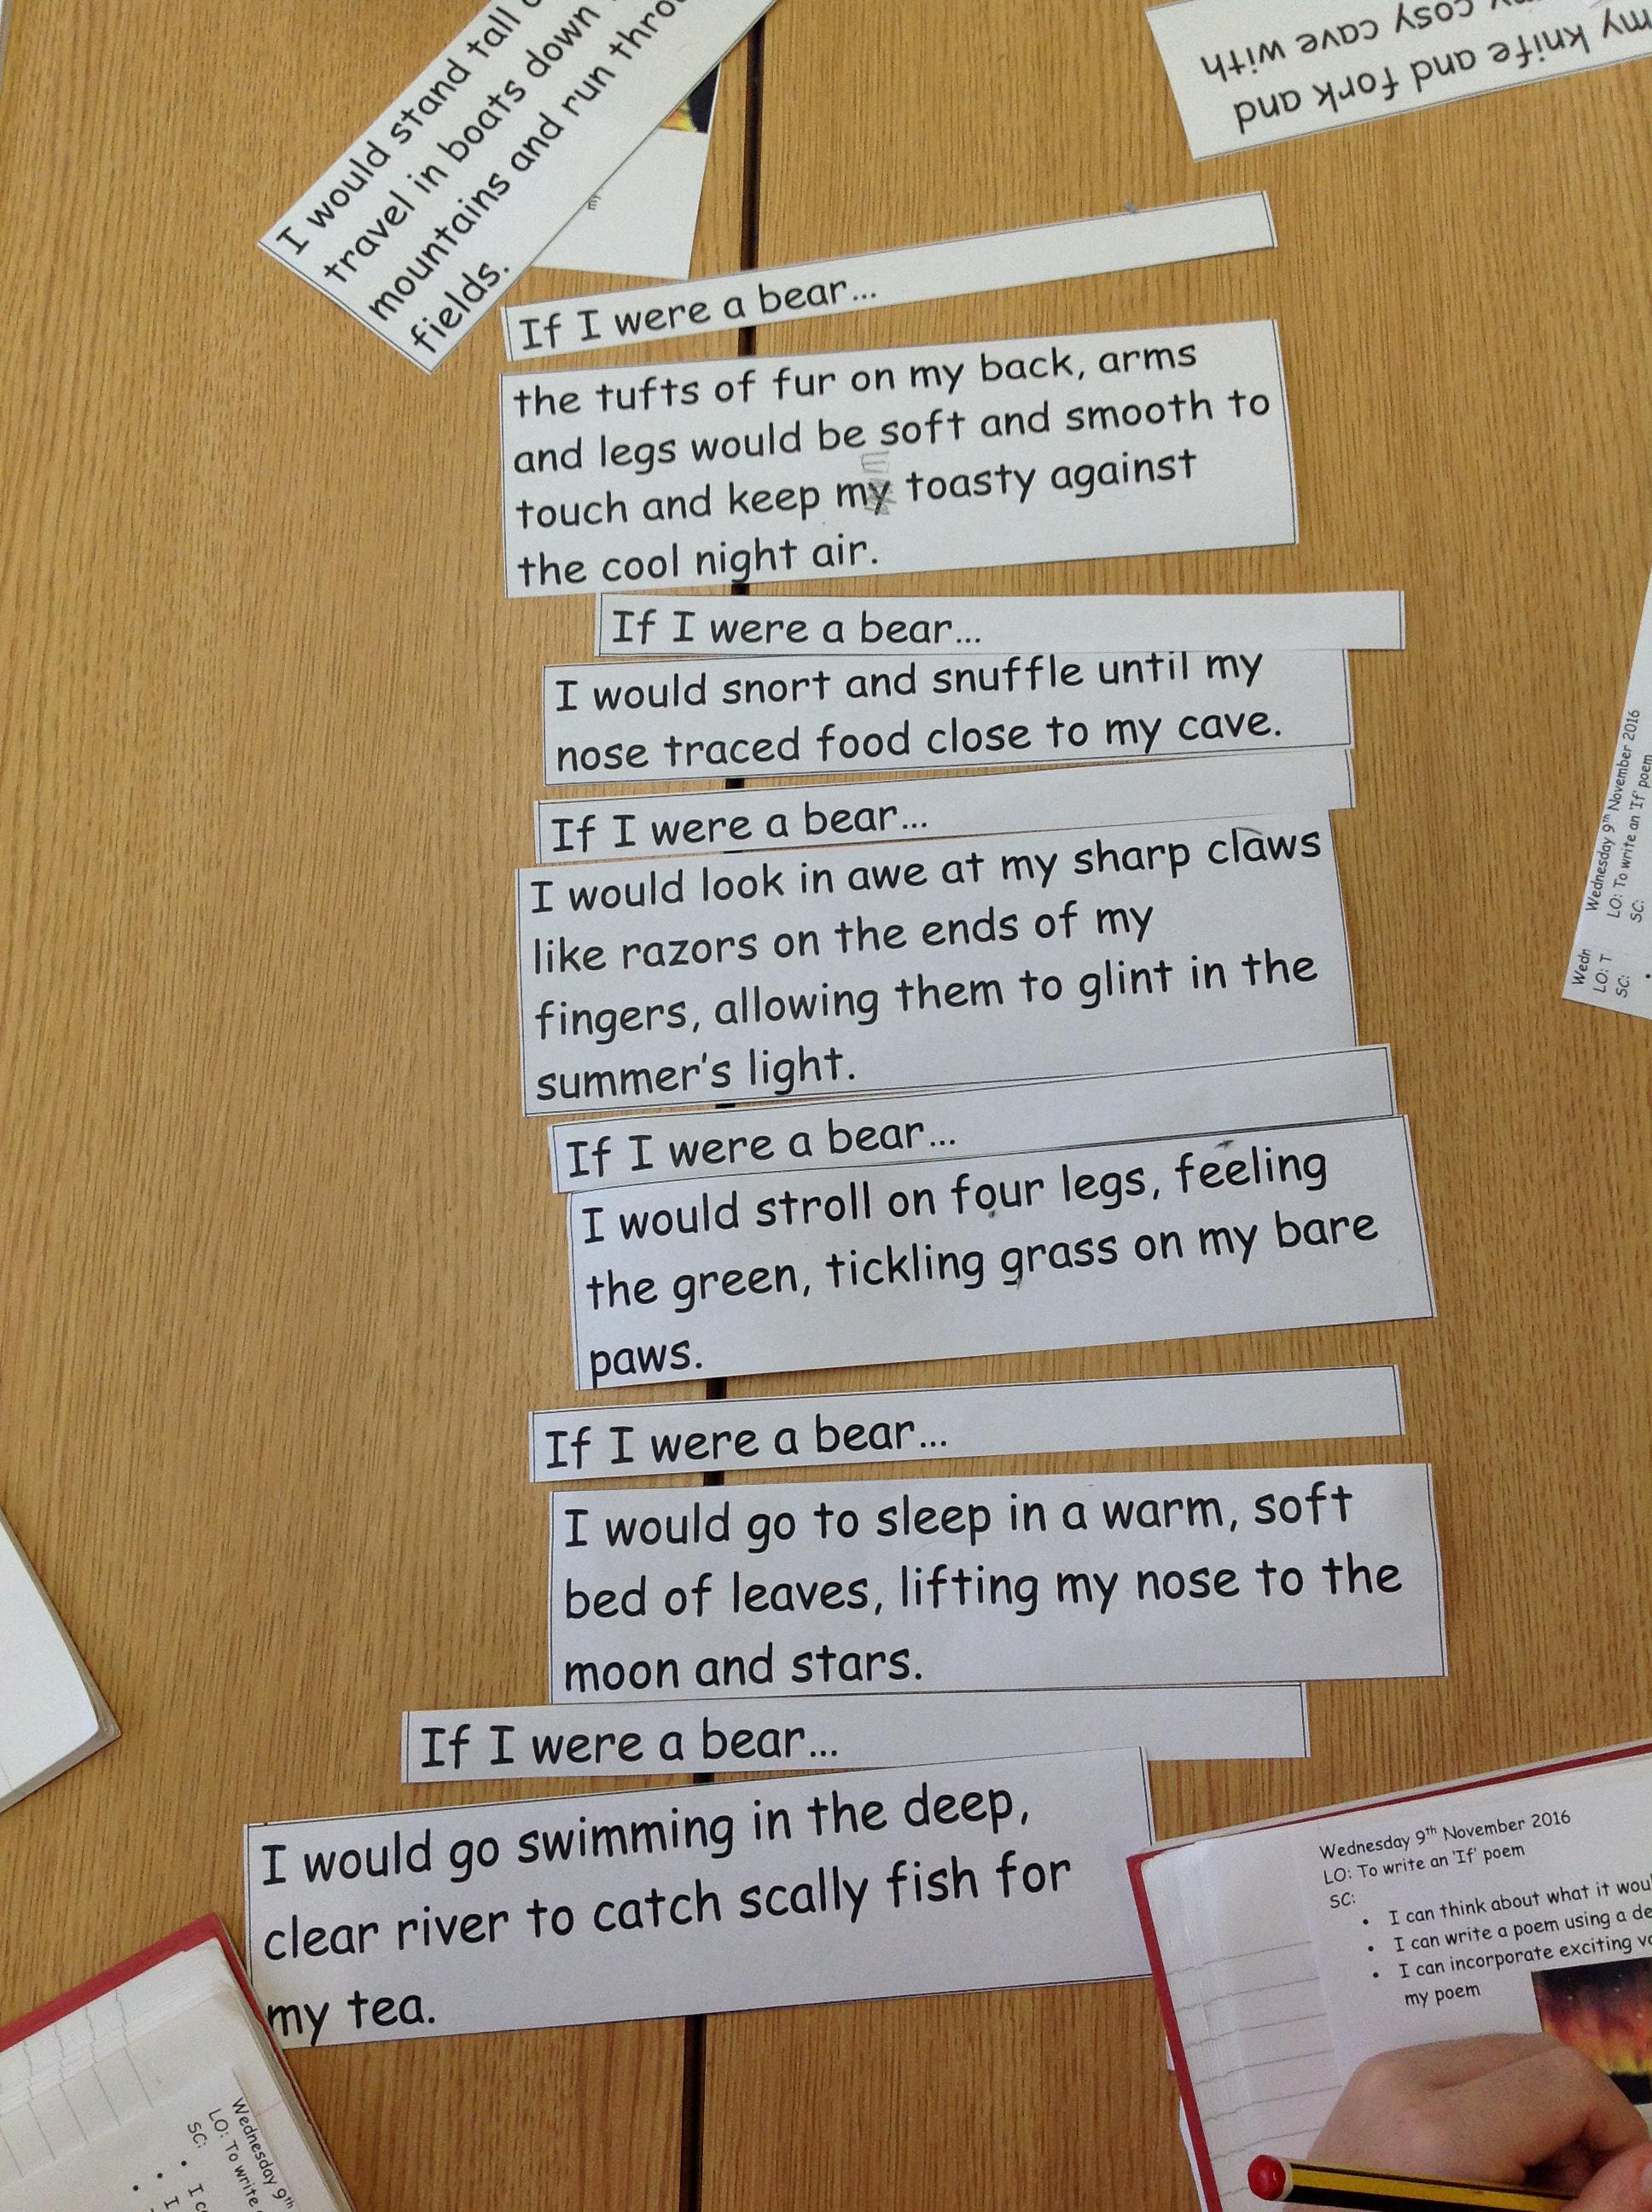 I would stand tall
travel in boats down
mountains and run
fields.
cosy cave with
my knife and fork and
If I were a bear...
the tufts of fur on my back, arms
and legs would be soft and smooth to
touch and keep my toasty against
the cool night air.
If I were a bear...
I would snort and snuffle until my
nose traced food close to my cave.
If I were a bear...
I would look in awe at my sharp claws
like razors on the ends of my
fingers, allowing them to glint in the
summer's light.
If I were a bear...
I would stroll on four legs, feeling
the green, tickling grass on my bare
paws.
If I were a bear...
I would go to sleep in a warm, soft
bed of leaves, lifting my nose to the
moon and stars.
If I were a bear...
I would go swimming in the deep,
clear river to catch scally fish for
my tea.
Wednesday 9th November 2016
LO: To write an 'If' poem
SC:
LO: T
SC:
Wednesday 9th November 2016
LO: To write an 'If' poem
SC:
• I can think about what it
• I can write a poem using a
• I can incorporate exciting
my poem
Wednesday 9th
LO: To write
SC:
• I
• I